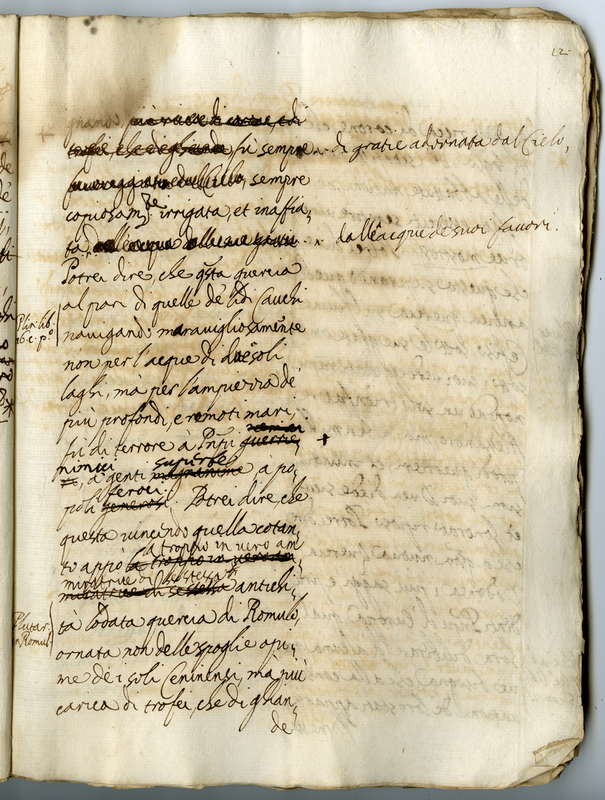 12.
fù sempre di gratie adornata dal Cielo,
sempre
copiosam.te irrigata, et inaffia,
ta dall'acque de suoi favori.
Potrei dire, che q̃sta quercia
al pari di quelle de lidi Cauchi
Plin: lib.
16. c. p.º
navigando maravigliosamẽte
non per l'acque di due soli
laghi, ma per l'ampiezza de
più profondi, e remoti mari,
fù di terrore à
nimici, à genti superbe, à po,
poli feroci. Potrei dire, che
questa vincendo quella cotan,
to appò
la troppo in vero am
antichi,
tà lodata quercia di Romulo,
Plutar.
in Romul.
ornata non delle spoglie opi,
me dei soli Ceninensi, mà più
carica di trofei, che di ghian,
de